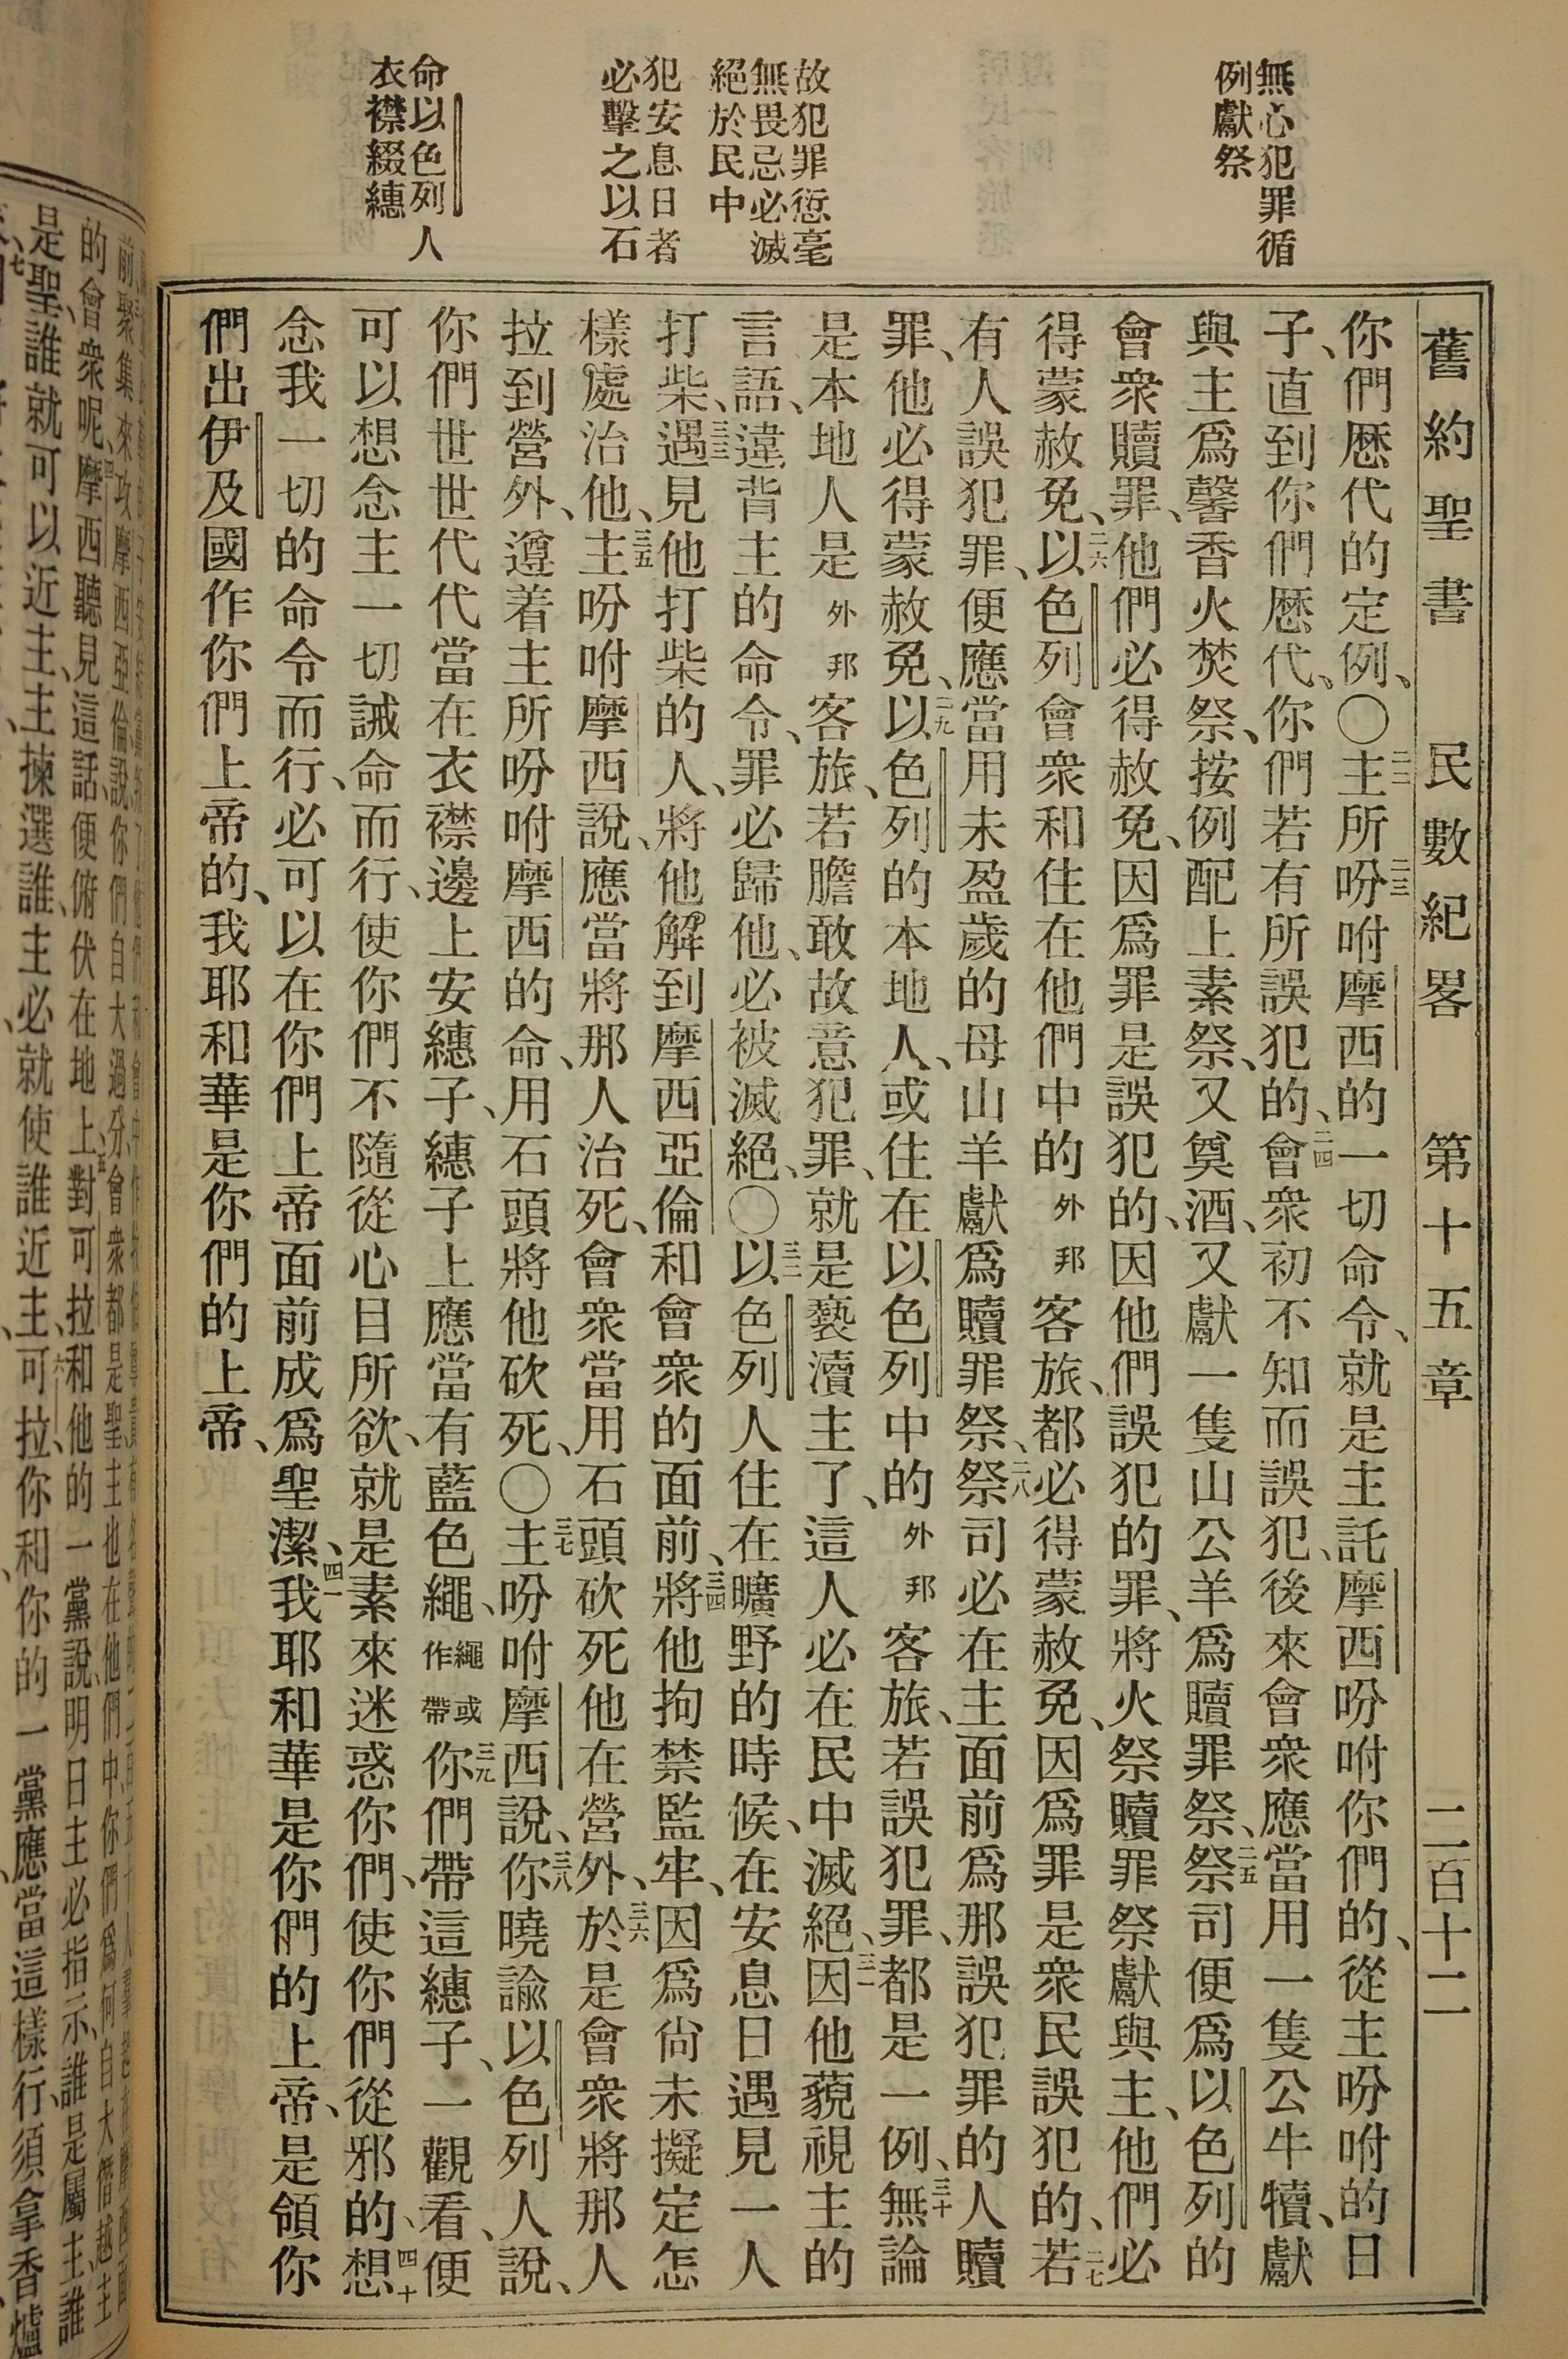 無心犯罪循
例獻祭
故犯罪愆毫
無畏忌必滅
絕於民中
犯安息日者
必擊之以石
命以色列人
衣襟綴繐
舊約聖書 民數紀畧 第十五章 二百十二
你們歷代的定例、〇二二主所二三吩咐摩西的一切命令、就是主託摩西吩咐你們的、從主吩咐的日
子、直到你們歷代、你們若有所誤犯的、二四會衆初不知而誤犯、後來會衆應當用一隻公牛犢、獻
與主爲馨香火焚祭、按例配上素祭、又奠酒、又獻一隻山公羊爲贖罪祭、二五祭司便爲以色列的
會衆贖罪、他們必得赦免、因爲罪是誤犯的、因他們誤犯的罪、將火祭贖罪祭獻與主、他們必
得蒙赦免、二六以色列會衆和住在他們中的外邦客旅、都必得蒙赦免、因爲罪是衆民誤犯的、二七若
有人誤犯罪、便應當用未盈歲的母山羊獻爲贖罪祭、二八祭司必在主面前爲那誤犯罪的人贖
罪、他必得蒙赦免、二九以色列的本地人、或住在以色列中的外邦客旅、若誤犯罪、都是一例、三十無論
是本地人是外邦客旅、若膽敢故意犯罪、就是褻瀆主了、這人必在民中滅絕、三一因他藐視主的
言語、違背主的命令、罪必歸他、必被滅絕、〇三二以色列人住在曠野的時候、在安息日遇見一人
打柴、三三遇見他打柴的人、將他解到摩西亞倫和會衆的面前、三四將他拘禁監牢、因爲尙未擬定怎
樣處治他、三五主吩咐摩西說、應當將那人治死、會衆當用石頭砍死他在營外、三六於是會衆將那人
拉到營外、遵着主所吩咐摩西的命、用石頭將他砍死、〇三七主吩咐摩西說、三八你曉諭以色列人說、
你們世世代代當在衣襟邊上安繐子、繐子上應當有藍色繩、繩或作帶三九你們帶這繐子、一觀看、便
可以想念主一切誡命而行、使你們不隨從心目所欲、就是素來迷惑你們、使你們從邪的、四十想
念我一切的命令而行、必可以在你們上帝面前成爲聖潔、四一我耶和華是你們的上帝、是領你
們出伊及國作你們上帝的、我耶和華是你們的上帝、